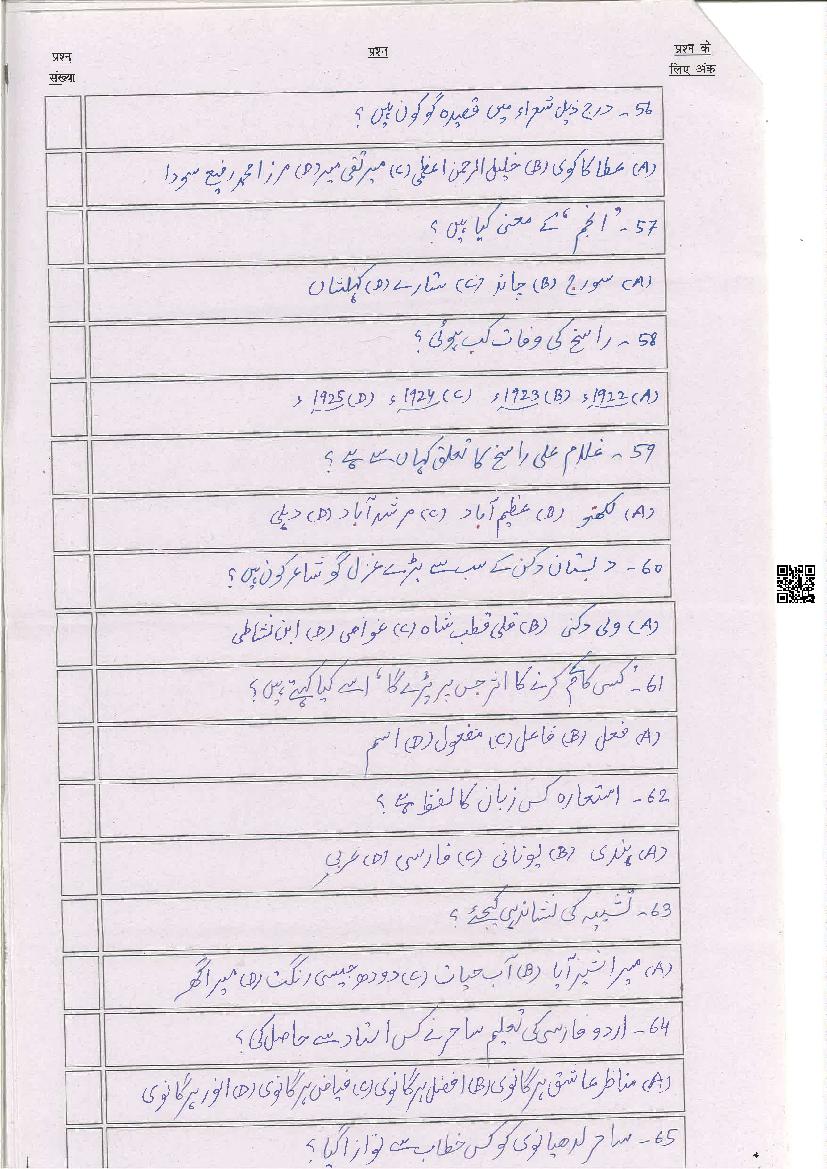 प्रश्न संख्या
प्रश्न
प्रश्न के लिए अंक
56- درج ذیل شعراء میں قصیدہ گو کون ہیں ؟
(A) عطا کاکوی (B) خلیل الرحمن اعظمی (C) میر تقی میر (D) مرزا محمد رفیع سودا
57- ’انجم‘ کے معنی کیا ہیں ؟
(A) سورج (B) چاند (C) ستارے (D) کہکشاں
58- راسخ کی وفات کب ہوئی ؟
(A) 1922ء (B) 1923ء (C) 1924ء (D) 1925ء
59- غلام علی راسخ کا تعلق کہاں سے ہے ؟
(A) لکھنو (B) عظیم آباد (C) مرشد آباد (D) دہلی
60- دبستان دکن کے سب سے بڑے غزل گو شاعر کون ہیں ؟
(A) ولی دکنی (B) قلی قطب شاہ (C) غواصی (D) ابن نشاطی
61- ’کسی کام کے کرنے کا اثر جس پر پڑے گا‘ اسے کیا کہتے ہیں ؟
(A) فعل (B) فاعل (C) مفعول (D) اسم
62- استعارہ کس زبان کا لفظ ہے ؟
(A) ہندی (B) یونانی (C) فارسی (D) عربی
63- تشبیہ کی نشاندہی کیجئے ؟
(A) میرا شیر آیا (B) آب حیات (C) دودھ جیسی رنگت (D) میرا گھر
64- اردو فارسی کی تعلیم ساحر نے کس استاد سے حاصل کی ؟
(A) مناظر عاشق ہرگانوی (B) افضل ہرگانوی (C) فیاض ہرگانوی (D) انور ہرگانوی
65- ساحر لدھیانوی کو کس خطاب سے نوازا گیا ؟